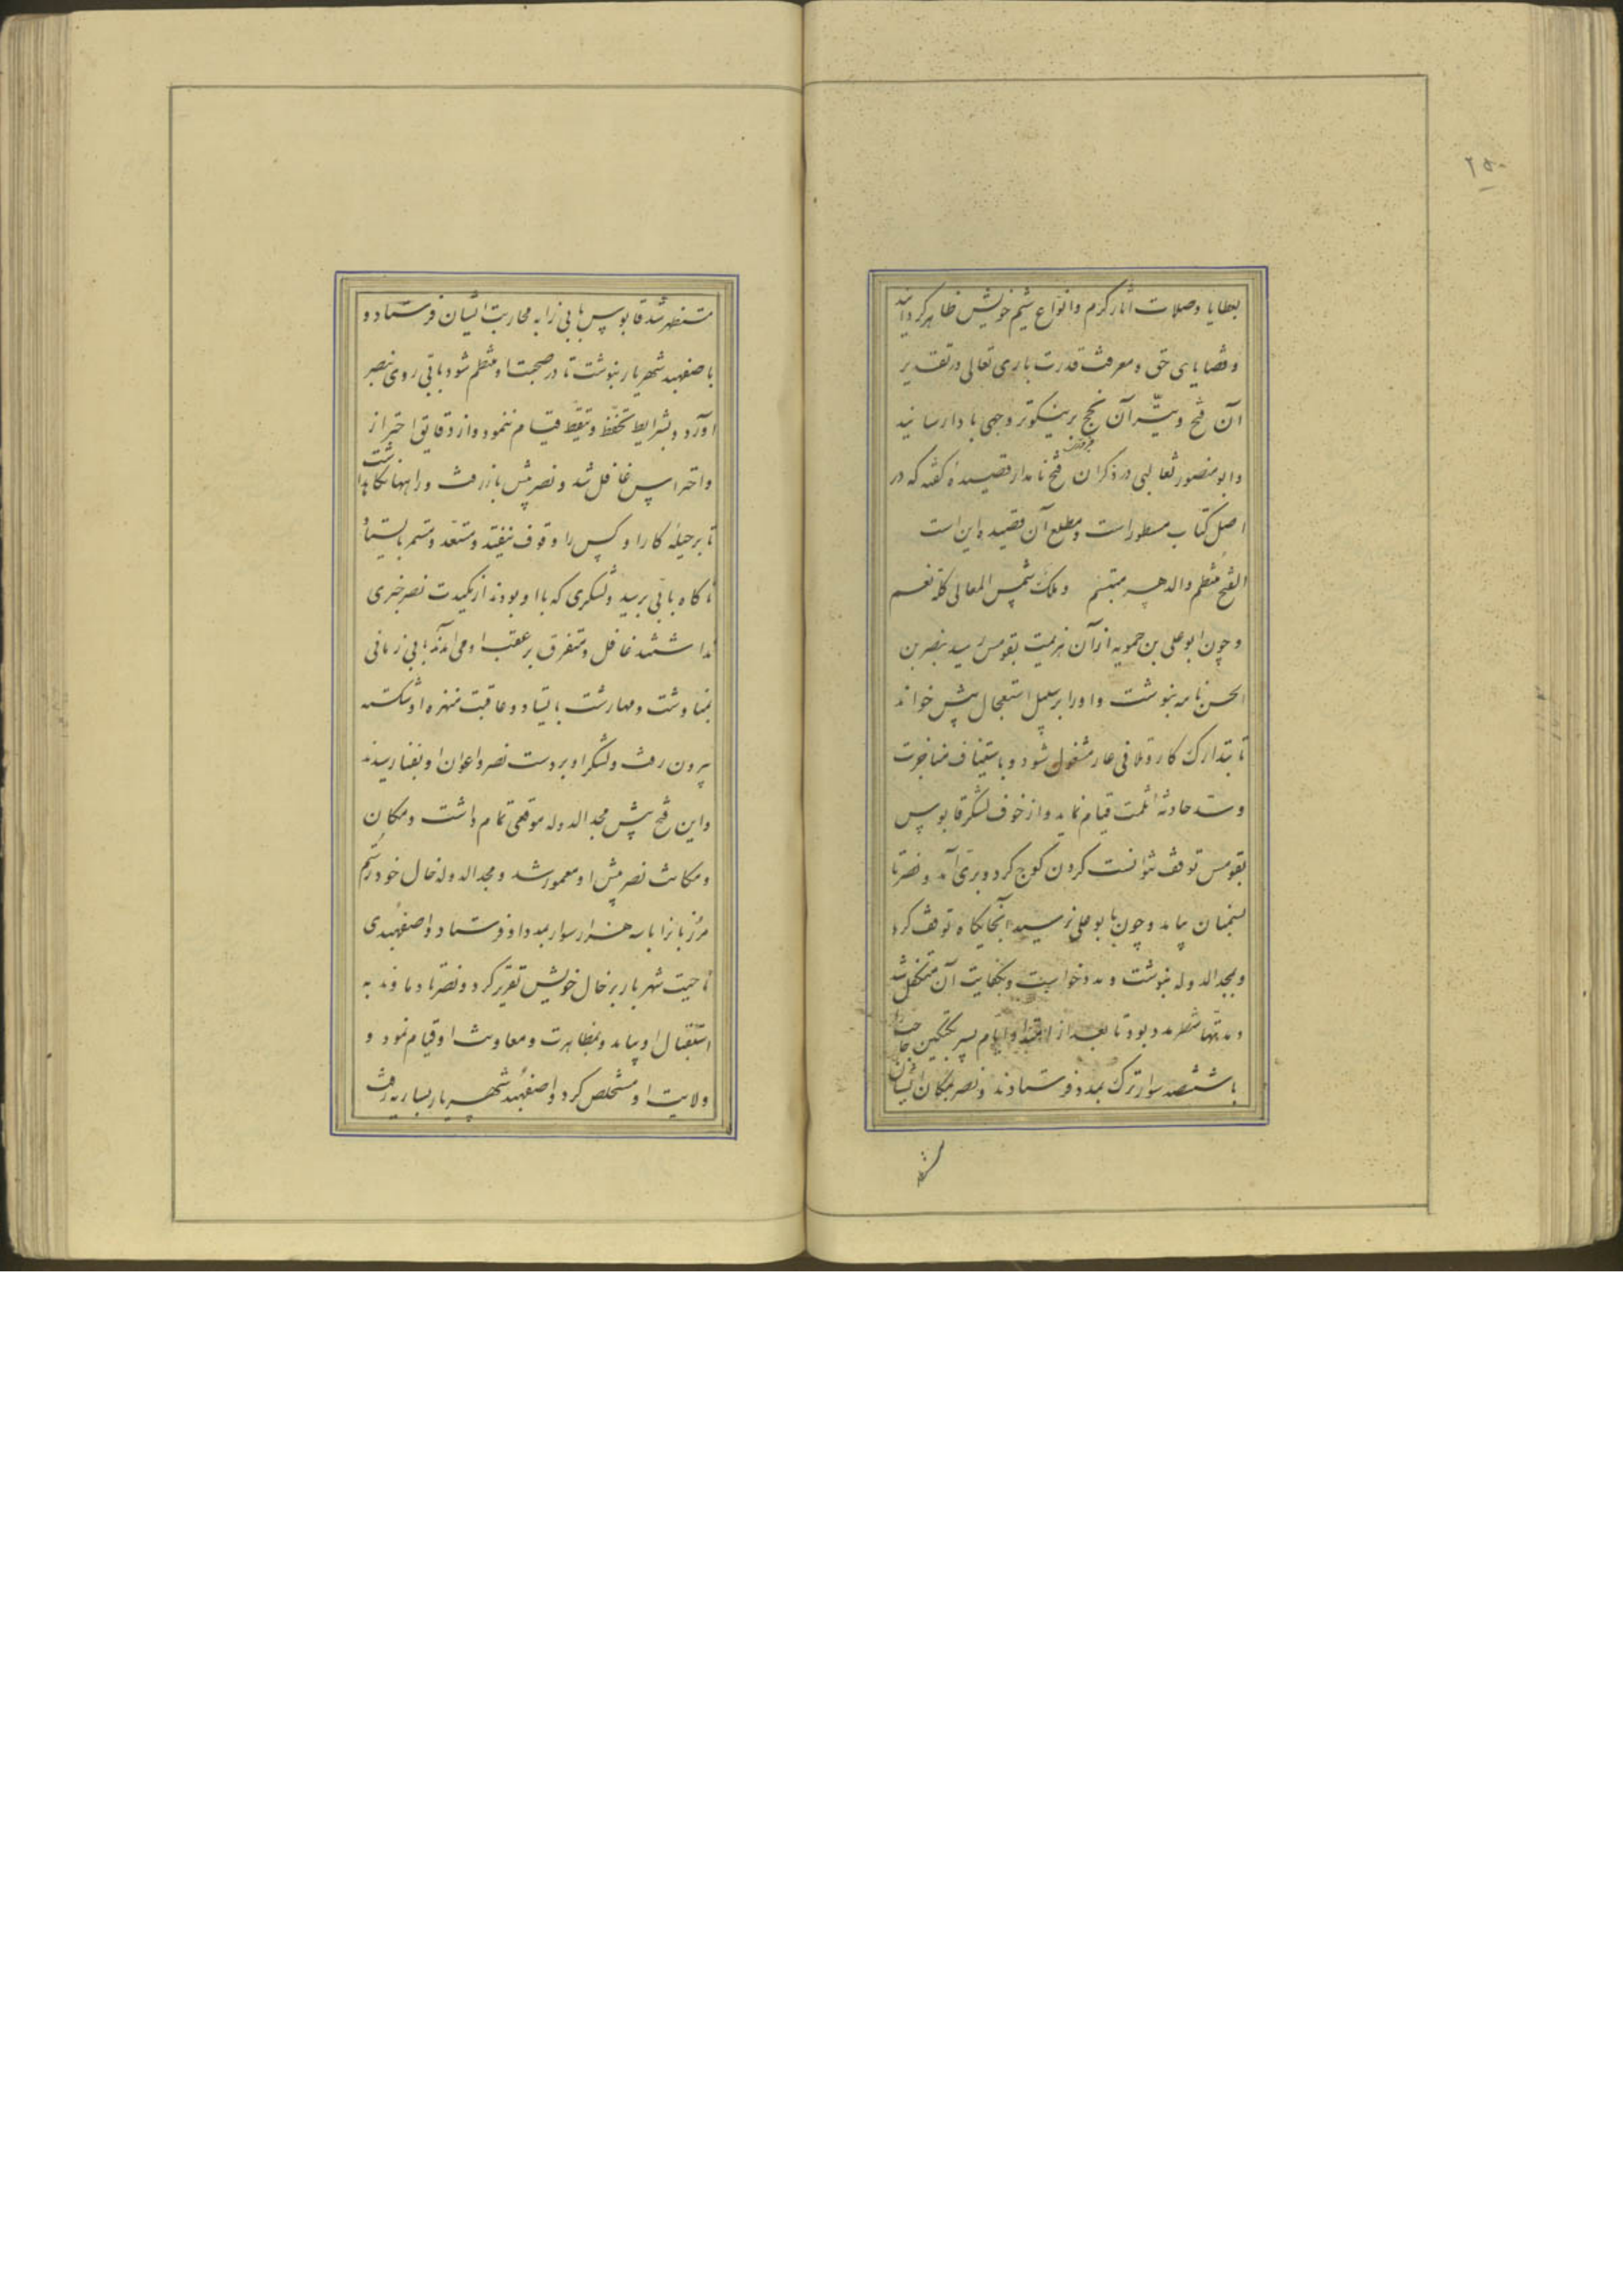 ۲۵۰
بعطایا وصلات آثار کرم وانواع شیم خویش ظاهر کردانید
وقضایای حق ومعرفت قدرت باری تعالی در تقدیر
آن فتح وتیسّر آن نجح بر نیکوتر وجهی بادا رسانید
وابو منصور ثعالبی در ذکر آن فتح نامدار قصیدهٔ گفته که در
اصل کتاب مسطور است ومطلع آن قصیده این است
الفتح منتظم والدهر مبتسم وملک شمس المعالی کله نعم
وچون ابو علی بن حمویه از آن هزیمت بقومس رسید بنصر بن
الحسن نامه بنوشت واورا بر سبیل استعجال پیش خواند
تا بتدارک کار وتلافی عار مشغول شود وباستیناف مناجزت
وسد حادثه ثلمت قیام نماید واز خوف لشکر قابوس
بقومس توقف نتوانست کردن کوچ کرد وبری آمد ونصر تا
بسمنان بیامد وچون بابو علی نرسید آنجایکاه توقف کرد
وبمجد الدوله بنوشت ومدد خواست وبکفایت آن متکفل شد
ومدتها منتظر مدد بود تا بعد از ایام پسر بکتکین حاجب را
با ششصد سوار ترک بمدد فرستادند ونصر بمکان ایشان
مستظهر شد قابوس بابی را به محاربت ایشان فرستاد و
باصفهبد شهریار بنوشت تا در صحبت او منتظم شود بابی روی بنصر
آورد وبشرایط تحفظ وتیقظ قیام ننمود واز دقایق احتراز
واحتراس غافل شد ونصر پیش باز رفت وراهها نکاه داشت
تا بر حیلهٔ کار او کس را وقوف نیفتد ومستعد ومستمر بایستاد
ناکاه ببابی رسید ولشکری که با او بودند از مکیدت نصر خبری
نداشتند غافل ومتفرق بر عقب او می آمدند بابی زمانی
بمناوشت ومهارشت باستاد وعاقبت منهزم او شکسته
بیرون رفت ولشکر او بر دست نصر واعوان او بفنا رسیدند
واین فتح پیش مجد الدوله موقعی تمام داشت ومکان
ومکانت نصر پیش او معمور شد ومجد الدوله خال خود رستم
مرزبانرا با سه هزار سوار بمدد او فرستاد واصفهبدی
ناحیت شهریار بر خال خویش تقریر کرد ونصر تا دماوند به
استقبال او بیامد وبمظاهرت ومعاونت او قیام نمود و
ولایت او مستخلص کرد واصفهبد شهریار بساریه رفت